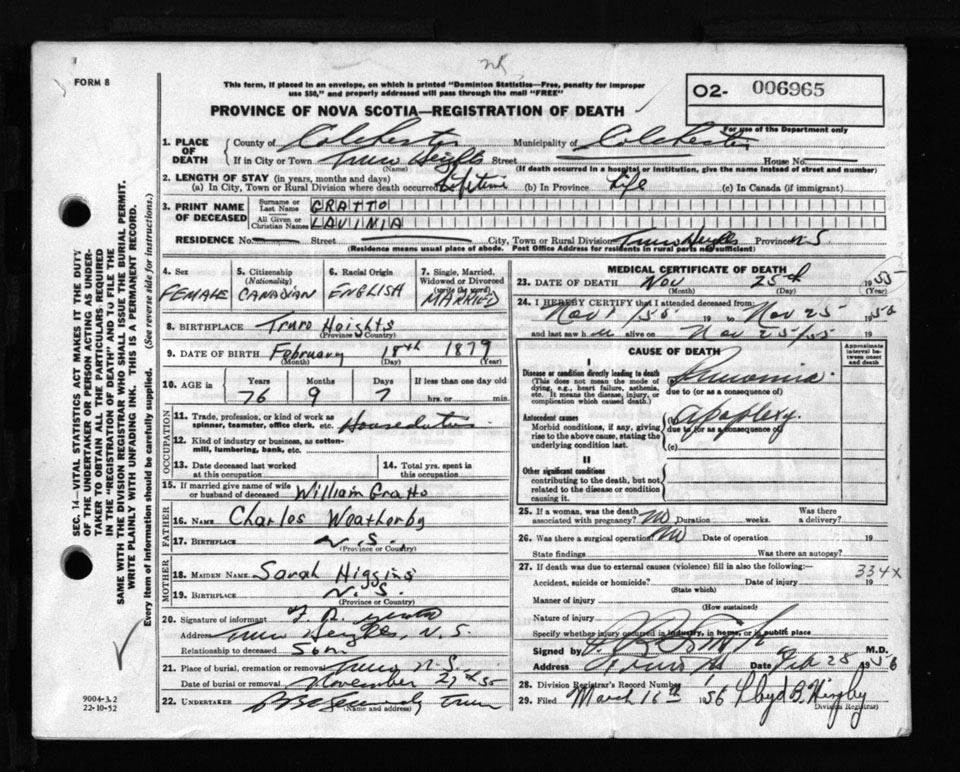 FORM 8
This form, if placed in an envelope, on which is printed "Dominion Statistics—Free, penalty for improper
use $50," and properly addressed will pass through the mail "FREE"
PROVINCE OF NOVA SCOTIA—REGISTRATION OF DEATH
02- 006965
For use of the Department only
1. PLACE OF DEATH
County of Colchester Municipality of Colchester
If in City or Town Truro Heights Street House No.
(Name) (If death occurred in a hospital or institution, give the name instead of street and number)
2. LENGTH OF STAY (in years, months and days)
(a) In City, Town or Rural Division where death occurred Lifetime (b) In Province Life (c) In Canada (if immigrant)
3. PRINT NAME OF DECEASED
Surname or Last Name GRATTO
All Given or Christian Names LAVINIA
RESIDENCE No. Street City, Town or Rural Division Truro Heights Province N.S.
(Residence means usual place of abode. Post Office Address for residents in rural parts not sufficient)
4. Sex FEMALE
5. Citizenship (Nationality) CANADIAN
6. Racial Origin ENGLISH
7. Single, Married, Widowed or Divorced (write the word) MARRIED
8. BIRTHPLACE Truro Heights
(Province or Country)
9. DATE OF BIRTH February 18th 1879
(Month) (Day) (Year)
10. AGE in Years Months Days If less than one day old
76 9 7 hrs. or min.
OCCUPATION
11. Trade, profession, or kind of work as spinner, teamster, office clerk, etc. House duties
12. Kind of industry or business, as cotton-mill, lumbering, bank, etc.
13. Date deceased last worked at this occupation
14. Total yrs. spent in this occupation
15. If married give name of wife or husband of deceased William Gratto
FATHER
16. NAME Charles Weatherby
17. BIRTHPLACE N.S.
(Province or Country)
MOTHER
18. MAIDEN NAME Sarah Higgins
19. BIRTHPLACE N.S.
(Province or Country)
20. Signature of informant
Address Truro Heights, N.S.
Relationship to deceased Son
21. Place of burial, cremation or removal Truro N.S.
Date of burial or removal November 27th 55
22. UNDERTAKER Truro
(Name and address)
MEDICAL CERTIFICATE OF DEATH
23. DATE OF DEATH Nov 25th 1955
(Month) (Day) (Year)
24. I HEREBY CERTIFY that I attended deceased from:
Nov 1/55 19 to Nov 25 1955
and last saw h alive on Nov 25/55 19
CAUSE OF DEATH
Approximate interval between onset and death
I
Disease or condition directly leading to death
(This does not mean the mode of dying, e.g., heart failure, asthenia, etc. It means the disease, injury, or complication which caused death.)
(a) Pneumonia
due to (or as a consequence of)
Antecedent causes
Morbid conditions, if any, giving rise to the above cause, stating the underlying condition last.
(b) Apoplexy
due to (or as a consequence of)
(c)
II
Other significant conditions
contributing to the death, but not related to the disease or condition causing it.
25. If a woman, was the death associated with pregnancy? No Duration weeks. Was there a delivery?
26. Was there a surgical operation? No Date of operation 19
State findings Was there an autopsy?
27. If death was due to external causes (violence) fill in also the following:—
334X
Accident, suicide or homicide? Date of injury 19
(State which)
Manner of injury
(How sustained)
Nature of injury
Specify whether injury occurred in industry, in home, or in public place
Signed by M.D.
Address Truro Date Feb 25 1956
28. Division Registrar's Record Number
29. Filed March 16th 1956 Lloyd B.
Division Registrar
SEC. 14—VITAL STATISTICS ACT MAKES IT THE DUTY
OF THE UNDERTAKER OR PERSON ACTING AS UNDER-
TAKER TO OBTAIN ALL THE PARTICULARS REQUIRED
IN THE "REGISTRATION OF DEATH" AND TO FILE THE
SAME WITH THE DIVISION REGISTRAR WHO SHALL ISSUE THE BURIAL PERMIT.
WRITE PLAINLY WITH UNFADING INK. THIS IS A PERMANENT RECORD.
Every item of information should be carefully supplied. (See reverse side for instructions.)
9004-3.2
22-10-52